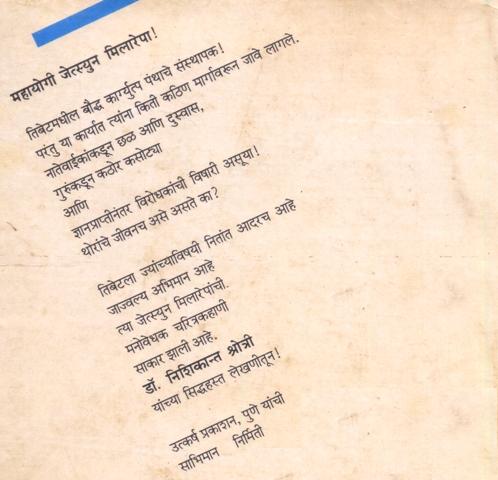 महायोगी जेत्स्युन मिलारेपा!
तिबेटमधील बौद्ध कार्ग्युत्प पंथाचे संस्थापक!
परंतु या कार्यात त्यांना किती कठिण मार्गावरून जावे लागले.
नातेवाईकांकडून छळ आणि दुस्वास,
गुरुंकडून कठोर कसोट्या
आणि
ज्ञानप्राप्तीनंतर विरोधकांची विषारी असूया!
थोरांचे जीवनच असे असते का?
तिबेटला ज्यांच्याविषयी नितांत आदरच आहे
जाज्वल्य अभिमान आहे
त्या जेत्स्युन मिलारेपांची.
मनोवेधक चरित्रकहाणी
साकार झाली आहे.
डॉ. निशिकान्त श्रोत्री
यांच्या सिद्धहस्त लेखणीतून!
उत्कर्ष प्रकाशन, पुणे यांची
साभिमान निर्मिती